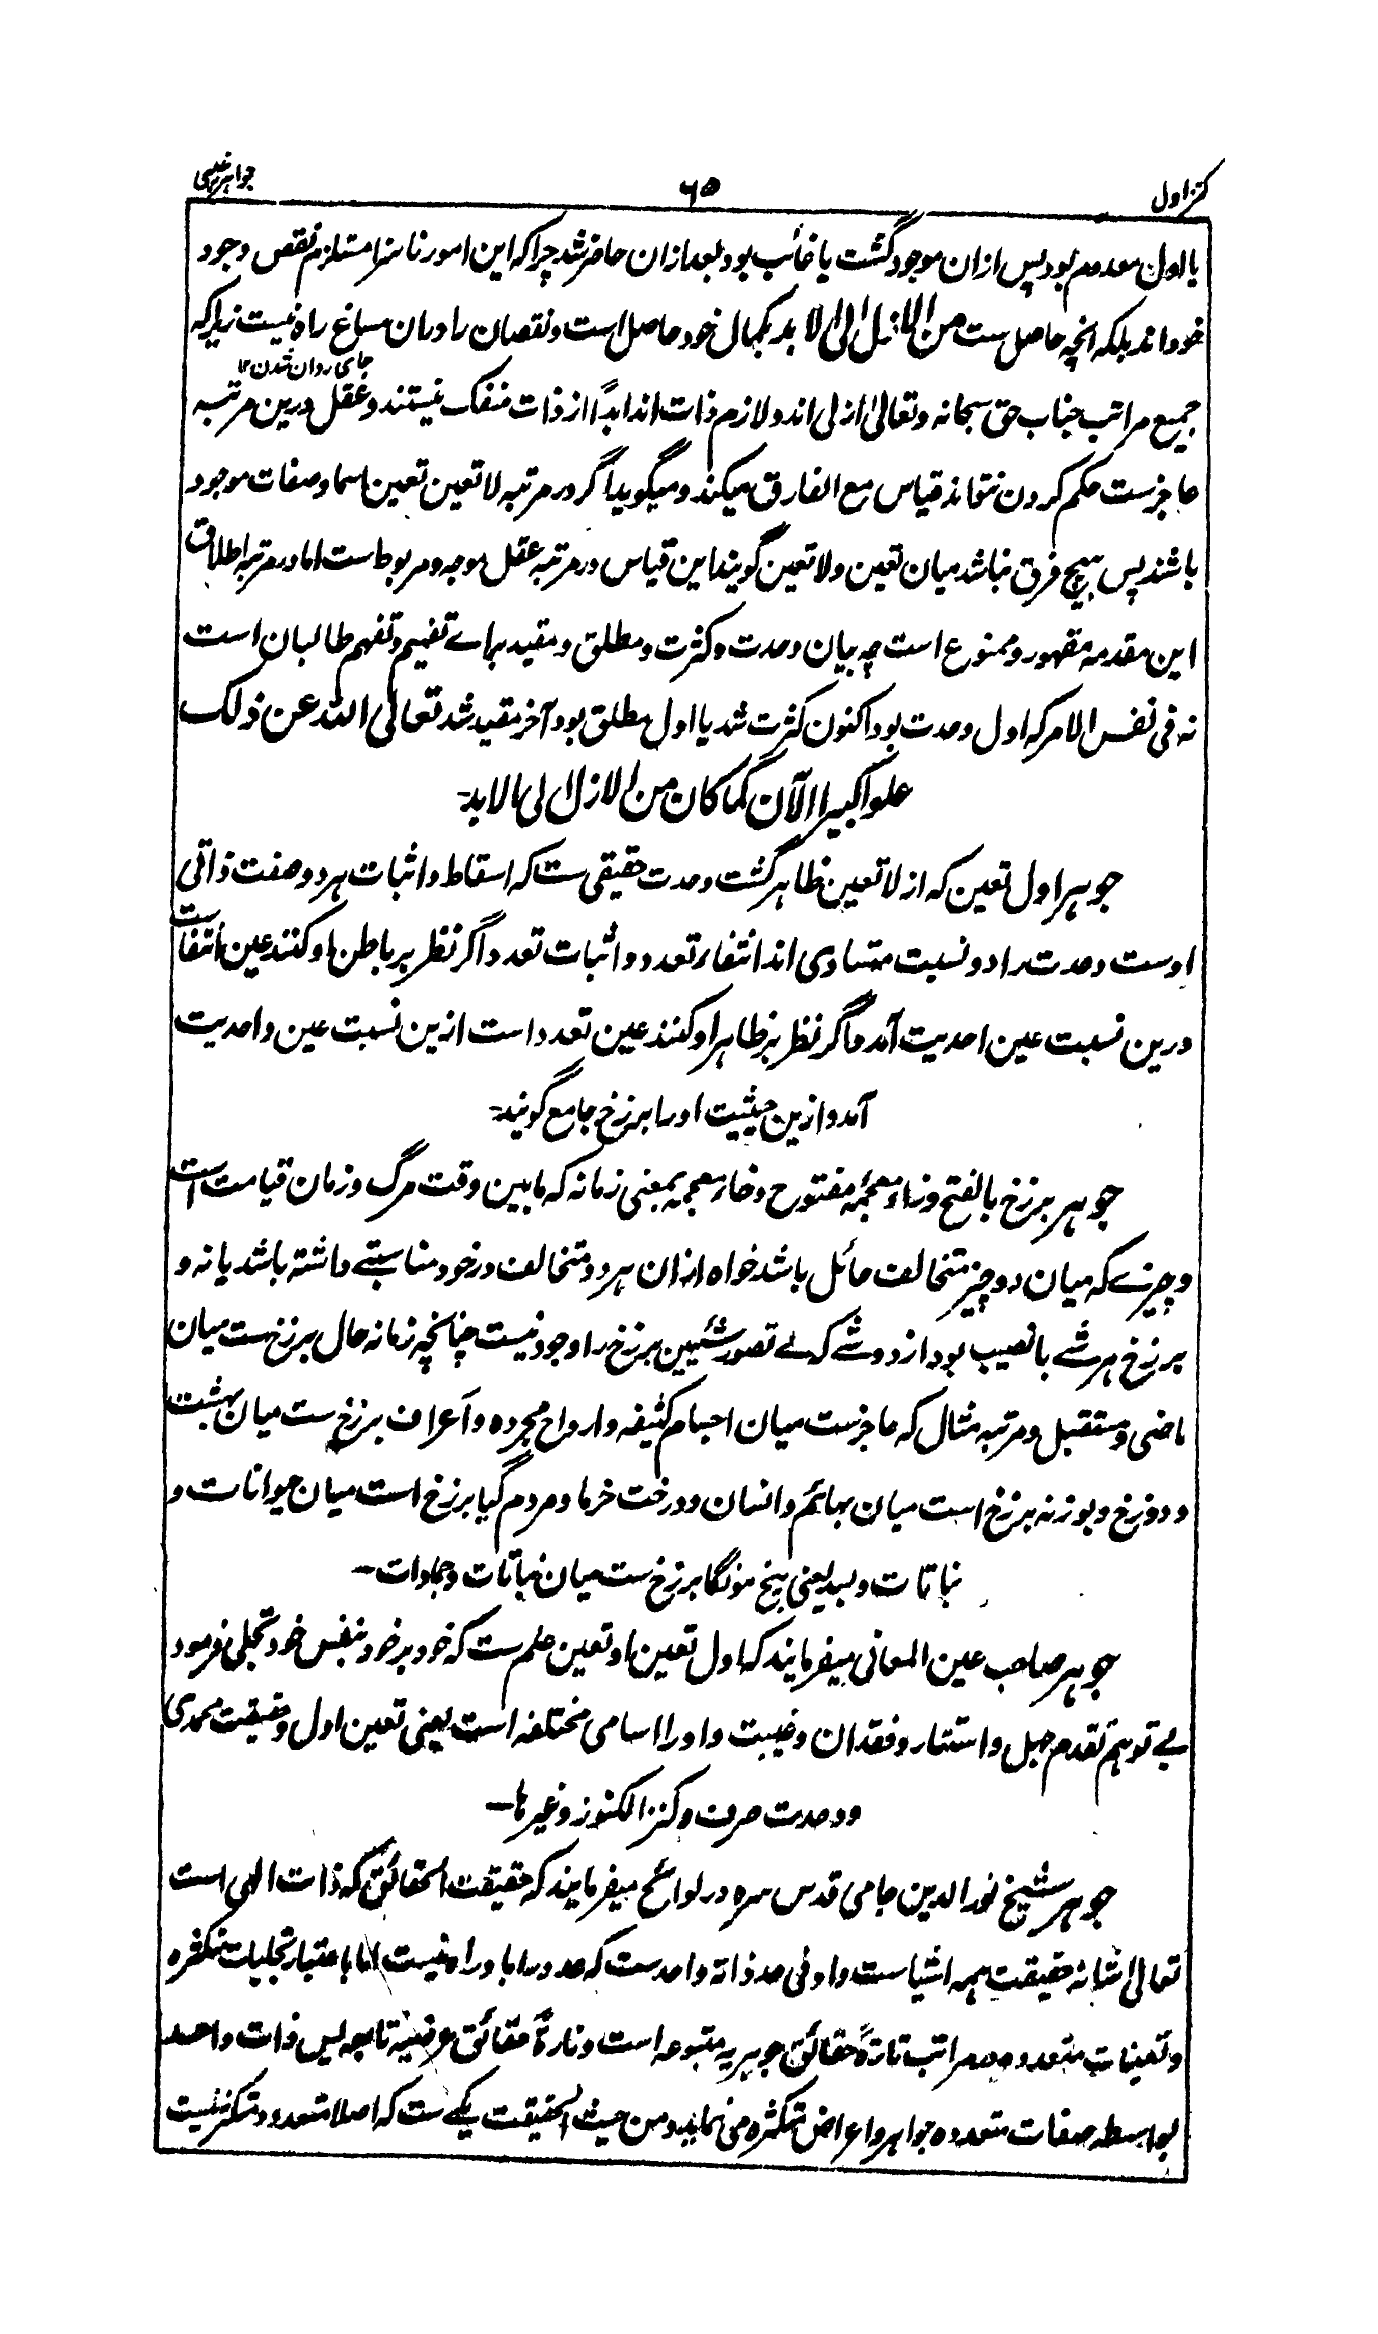 کنز اول
۶۵
جواهر غیبی
یا اول معدوم بود پس ازان موجود گشت یا غائب بود بعد ازان حاضر شد چرا که این امور ناسزا مستلزم نقص وجود
خود اند بلکه انچه حاصل ست من الازل الی الابد بکمال خود حاصل است و نقصان را دران مساغ راه نیست زیرا که
جای روان شدن ۱۲
جمیع مراتب جناب حق سبحانه و تعالیٰ ازلی اند و لازم ذات اند ابداً از ذات منفک نیستند و عقل درین مرتبه
عاجزست حکم کردن نتواند قیاس مع الفارق میکند و میگوید اگر در مرتبه لا تعین تعین اسما و صفات موجود
باشند پس هیچ فرق نباشد میان تعین و لا تعین گویند این قیاس در مرتبه عقل موجه و مربوط است اما در مرتبه اطلاق
این مقدمه مقهور و ممنوع است چه بیان وحدت و کثرت و مطلق و مقید براے تفهیم و تفهم طالبان است
نه فی نفس الامر که اول وحدت بود اکنون کثرت شد یا اول مطلق بود آخر مقید شد تعالی الله عن ذلک
علوا کبیرا الآن کما کان من الازل الی الابد۔
جوهر اول تعین که از لا تعین ظاهر گشت وحدت حقیقی ست که اسقاط و اثبات هر دو صفت ذاتی
اوست وحدت را دو نسبت متساوی اند انتفاء تعدد و اثبات تعدد اگر نظر بر باطن او کنند عین انتفا ست
درین نسبت عین احدیت آمد و اگر نظر بر ظاهر او کنند عین تعدد است ازین نسبت عین واحدیت
آمد و ازین حیثیت او را برزخ جامع گویند۔
جوهر برزخ بالفتح و زاء معجمه مفتوح و خاء معجمه بمعنی زمانه که مابین وقت مرگ و زمان قیامت است
و چیزے که میان دو چیز متخالف حائل باشد خواه ازان هر دو متخالف در خود مناسبتے داشته باشد یا نه و
برزخ هر شے بانصیب بود از دو شے که بے تصور شئیین برزخ را وجود نیست چنانچه زمانه حال برزخ ست میان
ماضی و مستقبل و مرتبه مثال که حاجزست میان اجسام کثیفه و ارواح مجرده و اعراف برزخ ست میان بهشت
و دوزخ و بوزنه برزخ است میان بهائم و انسان و درخت خرما و مردم گیا برزخ است میان حیوانات و
نباتات و بسد یعنی بیخ مونگا برزخ ست میان نباتات و جمادات۔
جوهر صاحب عین المعانی میفرمایند که اول تعین او تعین علم ست که خود بر خود بنفس خود تجلی فرمود
بے توهم تقدم جهل و استتار و فقدان و غیبت و او را اسامی مختلفه است یعنی تعین اول و حقیقت محمدی
و وحدت صرف و کنز الکنوز و غیرها۔
جوهر شیخ نور الدین جامی قدس سره در لوائح میفرمایند که حقیقت الحقائق که ذات الهی است
تعالی شانه حقیقت همه اشیاست و او فی حد ذاته واحدست که عدد را باو راه نیست اما باعتبار تجلیات متکثره
و تعینات متعدده در مراتب تارةً حقائق جوهریه متبوعه است و تارةً حقائق عرضیه تابعه پس ذات واحد
بواسطه صفات متعدده جواهر و اعراض متکثره می نماید و من حیث الحقیقت یکے ست که اصلا متعدد و متکثر نیست